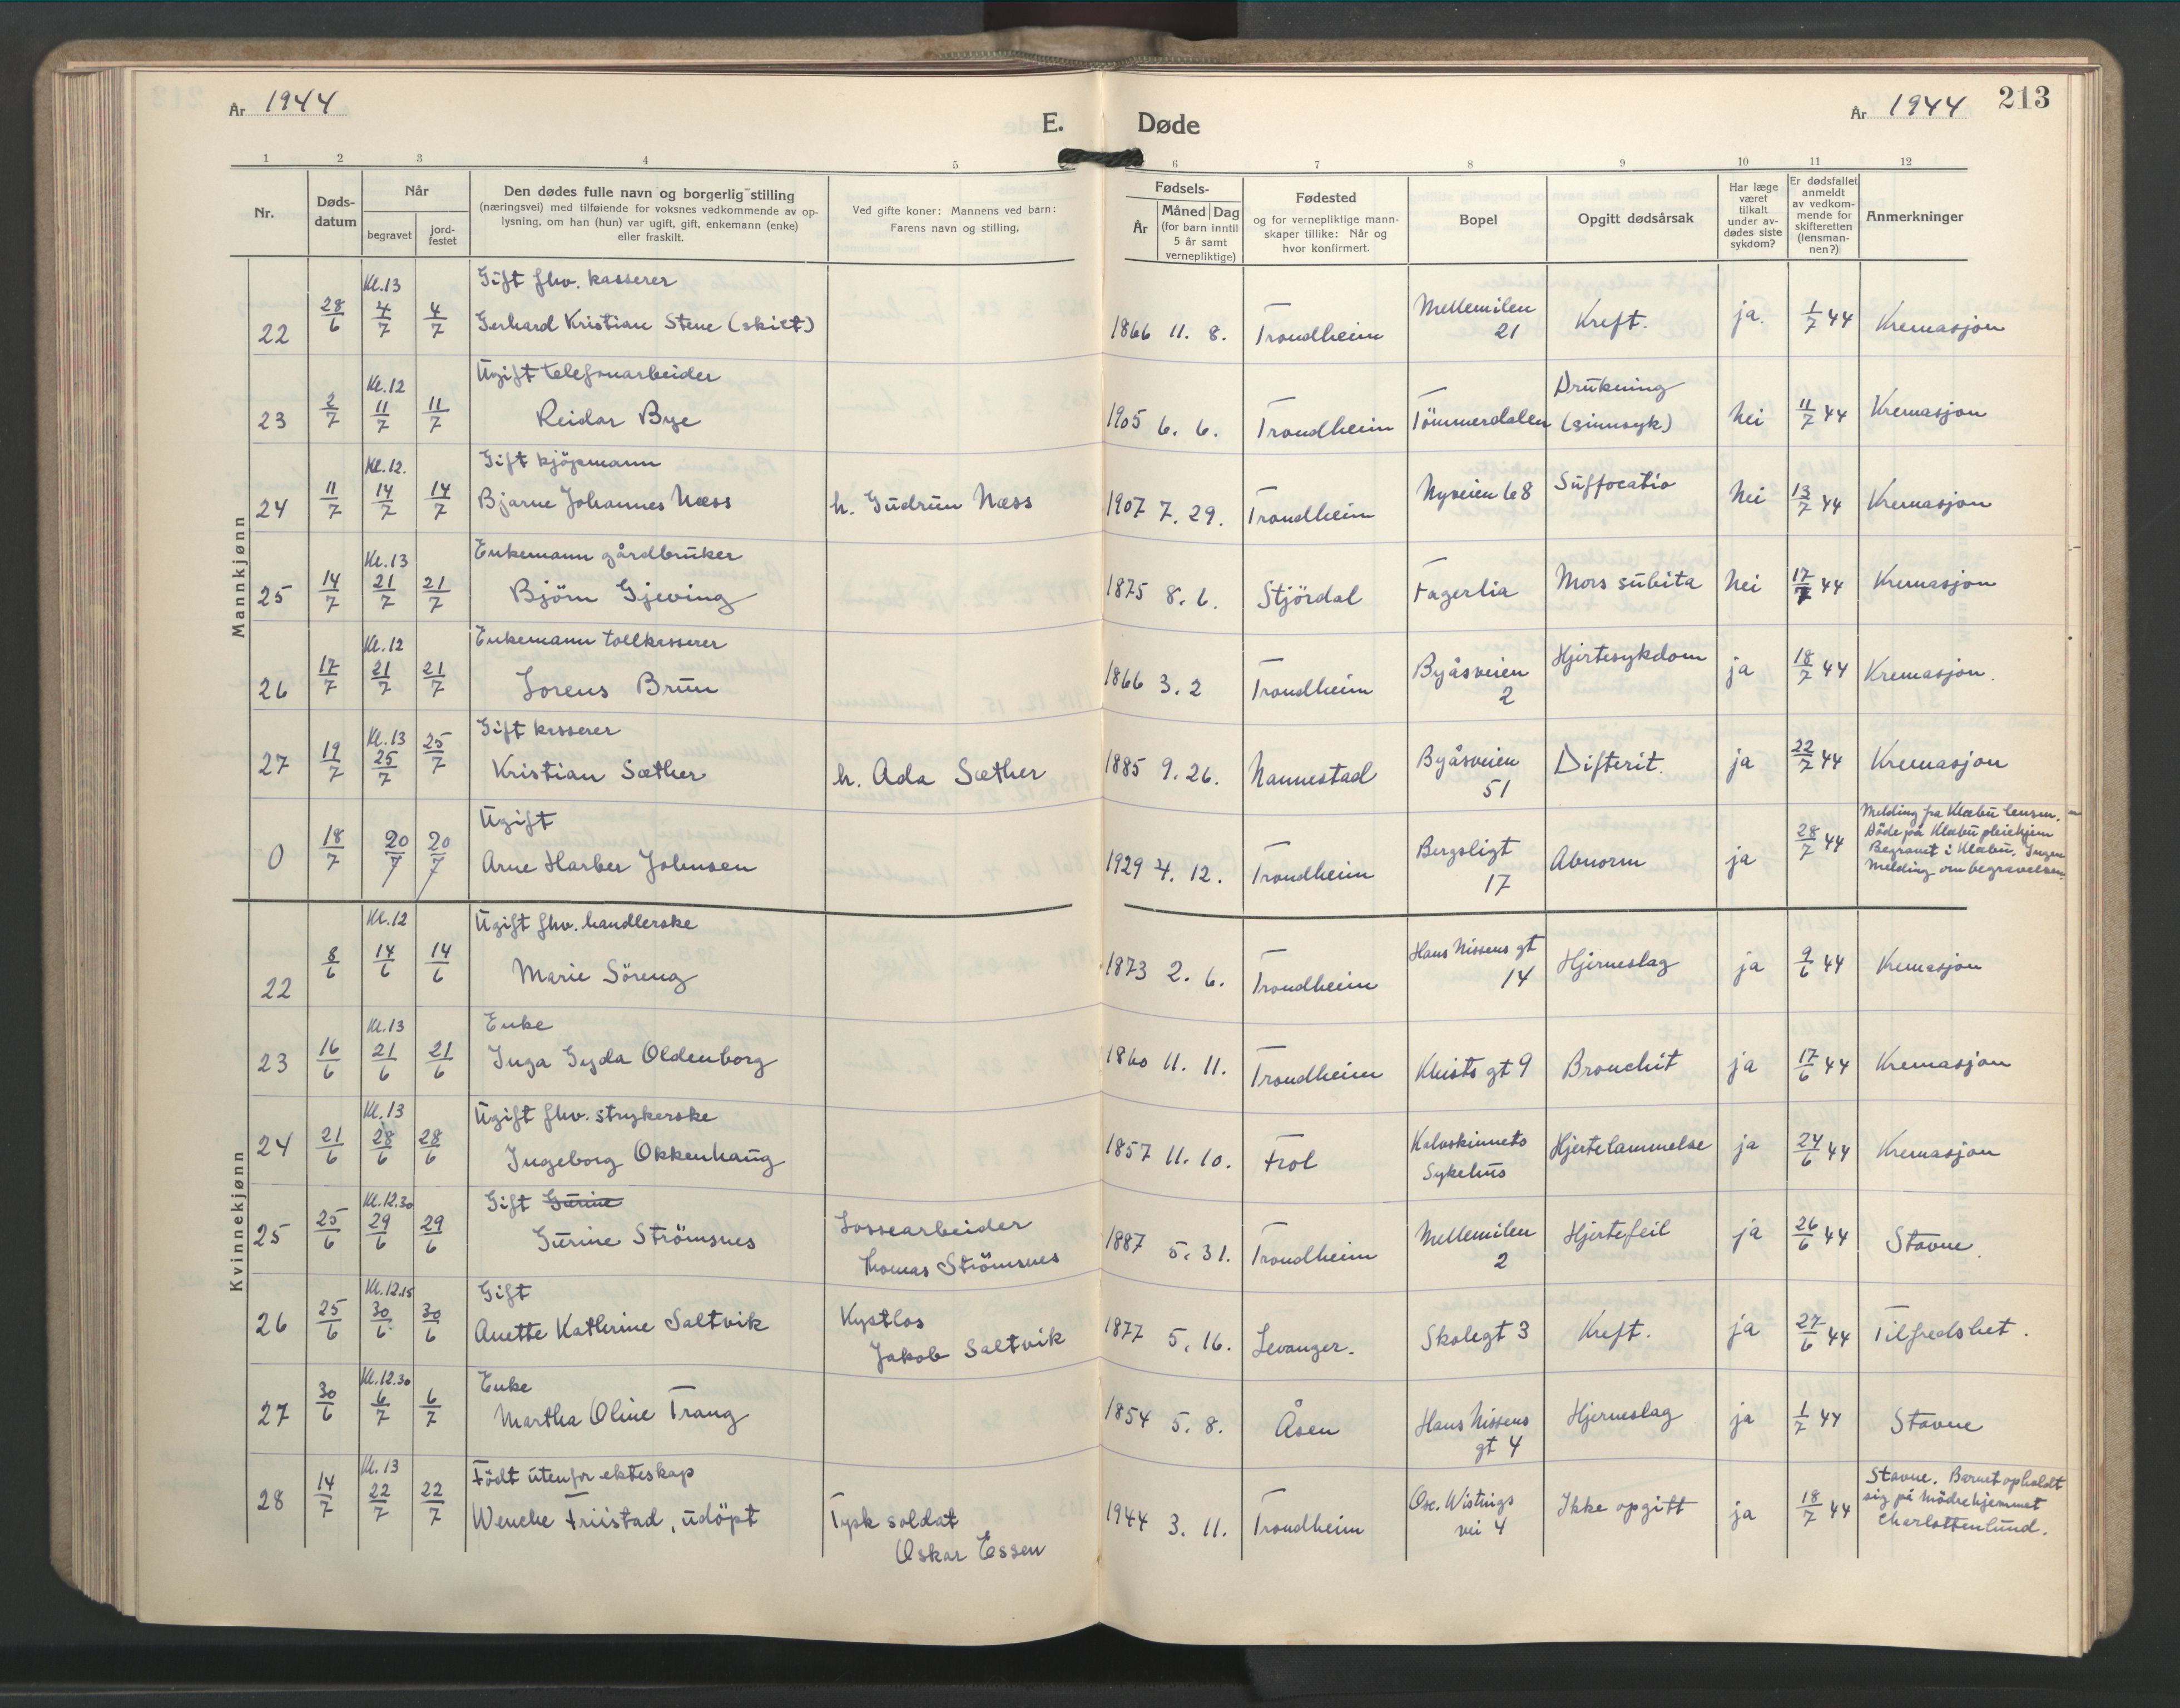 År 1944
E. Døde
År 1944 213
1 2 3 4 5 6 7 8 9 10 11 12
Nr.
Døds-
datum
Når
begravet
jord-
festet
Den dødes fulle navn og borgerlig stilling
(næringsvei) med tilføiende for voksnes vedkommende av op-
lysning, om han (hun) var ugift, gift, enkemann (enke)
eller fraskilt.
Ved gifte koner: Mannens ved barn:
Farens navn og stilling.
Fødsels-
År
Måned Dag
(for barn inntil
5 år samt
vernepliktige)
Fødested
og for vernepliktige mann-
skaper tillike: Når og
hvor konfirmert.
Bopel
Opgitt dødsårsak
Har læge
været
tilkalt
under av-
dødes siste
sykdom?
Er dødsfallet
anmeldt
av vedkom-
mende for
skifteretten
(lensman-
nen?)
Anmerkninger
Mannkjønn
22 28/6 Kl. 13 4/7 4/7 Gift fhv. kasserer
Gerhard Kristian Stene (skilt) 1866 11. 8. Trondheim Mellemilen 21 Kreft. ja. 1/7 44 Kremasjon
23 2/7 Kl. 12 11/7 11/7 Ugift telefonarbeider
Reidar Bye 1905 6. 6. Trondheim Tömmerdalen Drukning (sinnsyk) Nei 11/7 44 Kremasjon
24 11/7 Kl. 12. 14/7 14/7 Gift kjöpmann
Bjarne Johannes Næss h. Gudrun Næss 1907 7. 29. Trondheim Nyveien 68 Suffocatio Nei 13/7 44 Kremasjon
25 14/7 Kl. 13 21/7 21/7 Enkemann gårdbruker
Björn Gjeving 1875 8. 6. Stjördal Fagerlia Mors subita Nei 17/7 44 Kremasjon
26 17/7 Kl. 12 21/7 21/7 Enkemann tollkasserer
Lorens Brun 1866 3. 2 Trondheim Byåsveien 2 Hjertesykdom ja 18/7 44 Kremasjon.
27 19/7 Kl. 13 25/7 25/7 Gift kasserer
Kristian Sæther h. Ada Sæther 1885 9. 26. Nannestad Byåsveien 51 Difterit. ja 22/7 44 Kremasjon
0 18/7 20/7 20/7 Ugift
Arne Harber Johnsen 1929 4. 12. Trondheim Bergsligt 17 Abnorm ja 28/7 44
Melding fra Klæbu lensm.
Døde på Klæbu pleiehjem
Begravet i Klæbu. Ingen
Melding om begravelsen.
Kvinnekjønn
22 8/6 Kl. 12 14/6 14/6 Ugift fhv. handlerske
Marie Söreng 1873 2. 6. Trondheim Hans Nissens gt 14 Hjerneslag ja 9/6 44 Kremasjon
23 16/6 Kl. 13 21/6 21/6 Enke
Inga Gyda Oldenborg 1860 11. 11. Trondheim Klists gt 9 Bronchit ja 17/6 44 Kremasjon
24 21/6 Kl. 13 28/6 28/6 Ugift fhv. strykerske
Ingeborg Okkenhaug 1857 11. 10. Frol Kalvskinnets Sykehus Hjertelammelse ja 24/6 44 Kremasjon
25 25/6 Kl. 12.30 29/6 29/6 Gift Gurine
Gurine Strömsnes Lossearbeider Thomas Strömsnes 1887 5. 31. Trondheim Mellemilen 2 Hjertefeil ja 26/6 44 Stavne.
26 25/6 Kl. 12.15 30/6 30/6 Gift
Anette Kathrine Saltvik Kystlos Jakob Saltvik 1877 5. 16. Levanger. Skolegt 3 Kreft. ja 27/6 44 Tilfredshet.
27 30/6 Kl. 12.30 6/7 6/7 Enke
Martha Oline Trang 1854 5. 8. Åsen Hans Nissens gt 4 Hjerneslag ja 1/7 44 Stavne
28 14/7 Kl. 13 22/7 22/7 Födt utenfor ekteskap
Wenche Friistad, udöpt Tysk soldat Oskar Essen 1944 3. 11. Trondheim Osc. Wistings vei 4 Ikke opgitt ja 18/7 44
Stavne. Barnet opholdt
sig på Mödrehjemmet
Charlottenlund.